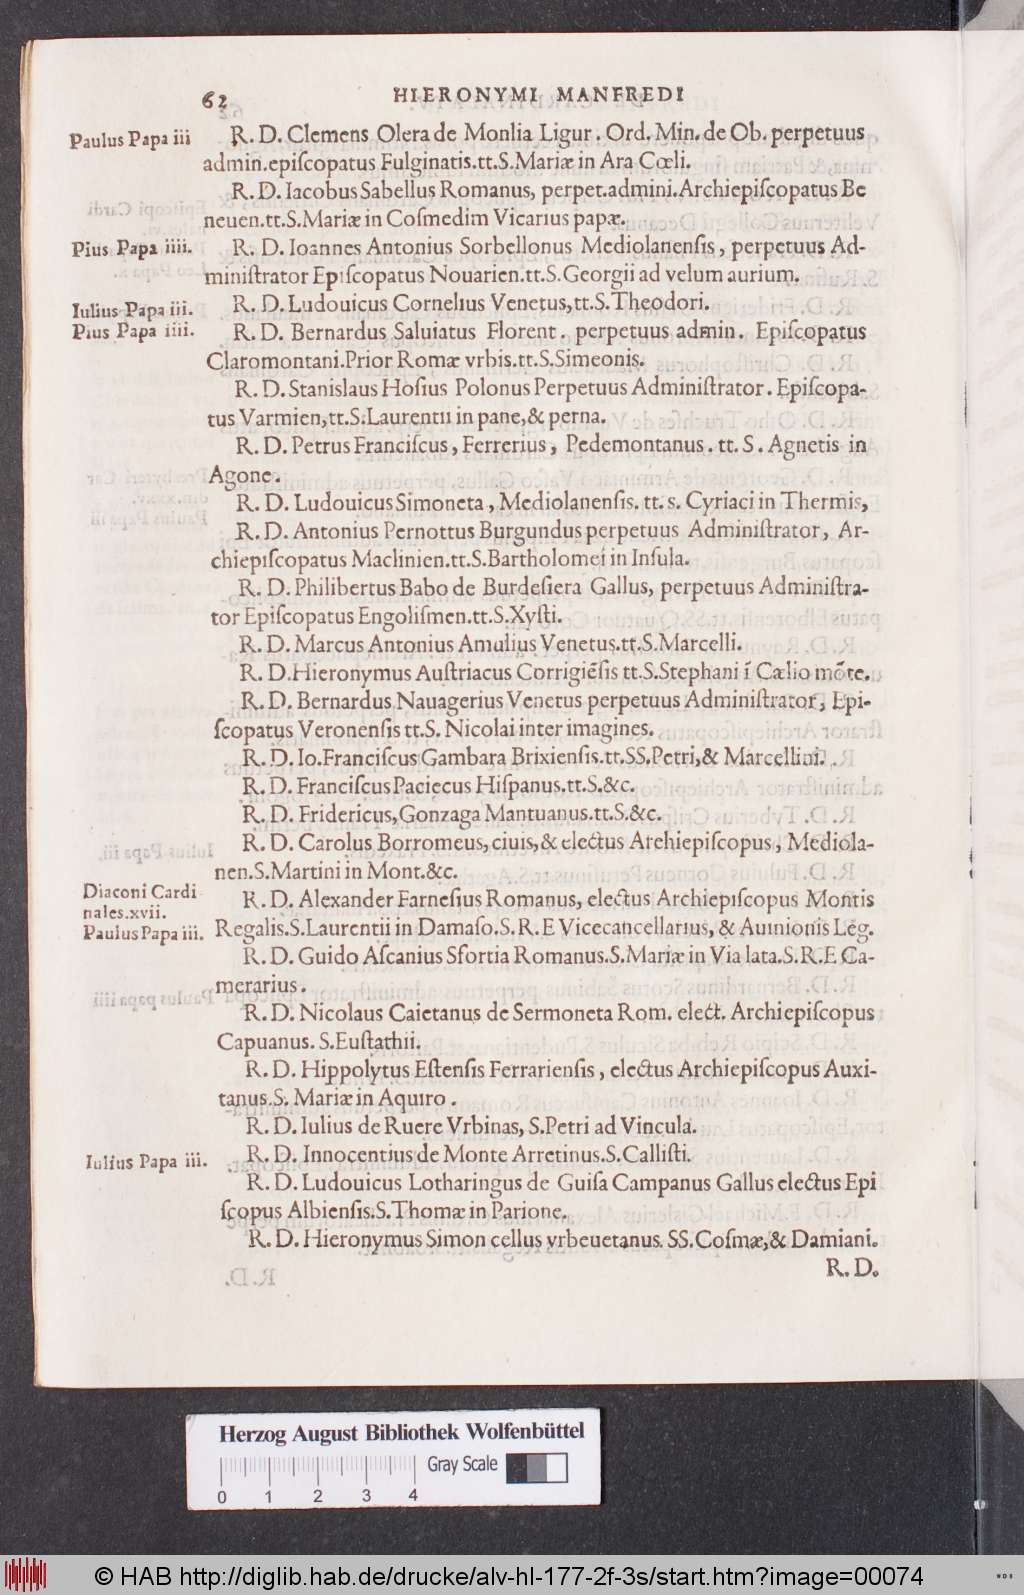 62 HIERONYMI MANFREDI
Paulus Papa iii
R. D. Clemens Olera de Monlia Ligur. Ord. Min. de Ob. perpetuus
admin.epiſcopatus Fulginatis.tt.S.Mariæ in Ara Cœli.
R. D. Iacobus Sabellus Romanus, perpet.admini.Archiepiſcopatus Be
neuen.tt.S.Mariæ in Coſmedim Vicarius papæ.
Pius Papa iiii.
R. D. Ioannes Antonius Sorbellonus Mediolanenſis, perpetuus Ad-
miniſtrator Epiſcopatus Nouarien.tt.S.Georgii ad velum aurium.
Iulius Papa iii.
R. D. Ludouicus Cornelius Venetus,tt.S.Theodori.
Pius Papa iiii.
R. D. Bernardus Saluiatus Florent. perpetuus admin. Epiſcopatus
Claromontani.Prior Romæ vrbis.tt.S.Simeonis.
R. D. Stanislaus Hoſius Polonus Perpetuus Adminiſtrator. Epiſcopa-
tus Varmien,tt.S.Laurentii in pane,& perna.
R. D. Petrus Franciſcus, Ferrerius, Pedemontanus. tt. S. Agnetis in
Agone.
R. D. Ludouicus Simoneta, Mediolanenſis. tt. s. Cyriaci in Thermis,
R. D. Antonius Pernottus Burgundus perpetuus Adminiſtrator, Ar-
chiepiſcopatus Maclinien.tt.S.Bartholomei in Inſula.
R. D. Philibertus Babo de Burdeſiera Gallus, perpetuus Adminiſtra-
tor Epiſcopatus Engoliſmen.tt.S.Xyſti.
R. D. Marcus Antonius Amulius Venetus.tt.S.Marcelli.
R. D.Hieronymus Auſtriacus Corrigiẽſis tt.S.Stephani ĩ Cælio mõte.
R. D. Bernardus Nauagerius Venetus perpetuus Adminiſtrator, Epi-
ſcopatus Veronenſis tt.S. Nicolai inter imagines.
R. D. Io.Franciſcus Gambara Brixienſis.tt.SS.Petri,& Marcellini.
R. D. Franciſcus Paciecus Hiſpanus.tt.S.&c.
R. D. Fridericus,Gonzaga Mantuanus.tt.S.&c.
R. D. Carolus Borromeus,ciuis,& electus Archiepiſcopus, Mediola-
nen.S.Martini in Mont.&c.
Diaconi Cardi
nales.xvii.
Paulus Papa iii.
R. D. Alexander Farneſius Romanus, electus Archiepiſcopus Montis
Regalis.S.Laurentii in Damaſo.S.R.E Vicecancellarius, & Auinionis Leg.
R. D. Guido Aſcanius Sfortia Romanus.S.Mariæ in Via lata.S.R.E Ca-
merarius.
R. D. Nicolaus Caietanus de Sermoneta Rom. elect. Archiepiſcopus
Capuanus. S.Euſtathii.
R. D. Hippolytus Eſtenſis Ferrarienſis, electus Archiepiſcopus Auxi-
tanus.S. Mariæ in Aquiro.
R. D. Iulius de Ruere Vrbinas, S.Petri ad Vincula.
Iulius Papa iii.
R. D. Innocentius de Monte Arretinus.S.Calliſti.
R. D. Ludouicus Lotharingus de Guiſa Campanus Gallus electus Epi
ſcopus Albienſis.S.Thomæ in Parione.
R. D. Hieronymus Simon cellus vrbeuetanus. SS.Coſmæ,& Damiani.
R. D.
Herzog August Bibliothek Wolfenbüttel
Gray Scale
0 1 2 3 4
© HAB http://diglib.hab.de/drucke/alv-hl-177-2f-3s/start.htm?image=00074